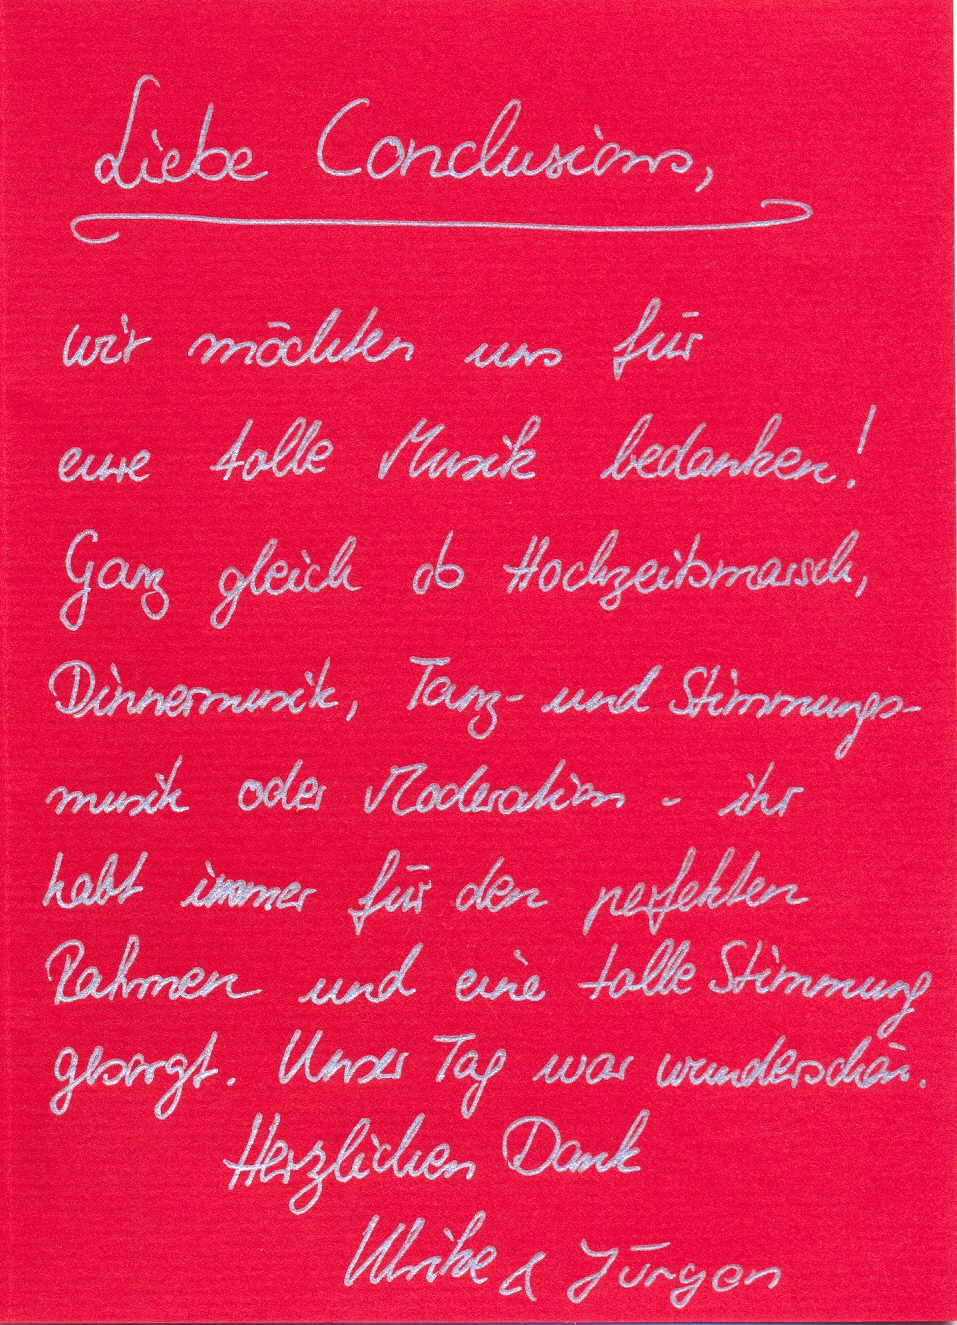 Liebe Conclusions,
wir möchten uns für
eure tolle Musik bedanken!
Ganz gleich ob Hochzeitsmarsch,
Dinnermusik, Tanz- und Stimmungs-
musik oder Moderation - ihr
habt immer für den perfekten
Rahmen und eine tolle Stimmung
gesorgt. Unser Tag war wunderschön.
Herzlichen Dank
Ulrike & Jürgen